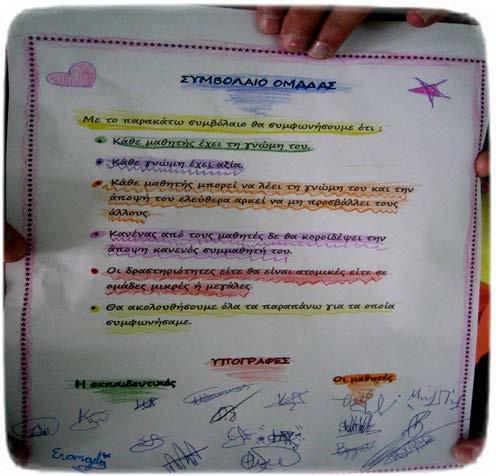 ΣΥΜΒΟΛΑΙΟ ΟΜΑΔΑΣ
Με το παρακάτω συμβόλαιο θα συμφωνήσουμε ότι :
Κάθε μαθητής έχει τη γνώμη του.
Κάθε γνώμη έχει αξία.
Κάθε μαθητής μπορεί να λέει τη γνώμη του και την
άποψή του ελεύθερα αρκεί να μη προσβάλλει τους
άλλους.
Κανένας από τους μαθητές δε θα κοροϊδέψει την
άποψη κανενός συμμαθητή του.
Οι δραστηριότητες είτε θα είναι ατομικές είτε σε
ομάδες μικρές ή μεγάλες.
Θα ακολουθήσουμε όλα τα παραπάνω για τα οποία
συμφωνήσαμε.
ΥΠΟΓΡΑΦΕΣ
Η εκπαιδευτικός Οι μαθητές